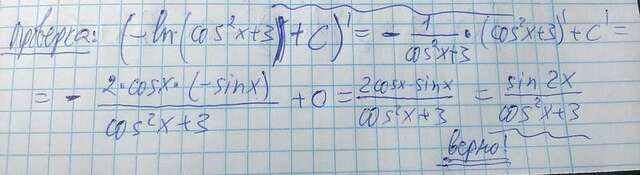 Проверка: (-ln(cos²x+3)+C)' = - 1/(cos²x+3) · (cos²x+3)' + C' =
= - 2·cosx·(-sinx)/(cos²x+3) + 0 = 2cosx·sinx/(cos²x+3) = sin2x/(cos²x+3)
верно!